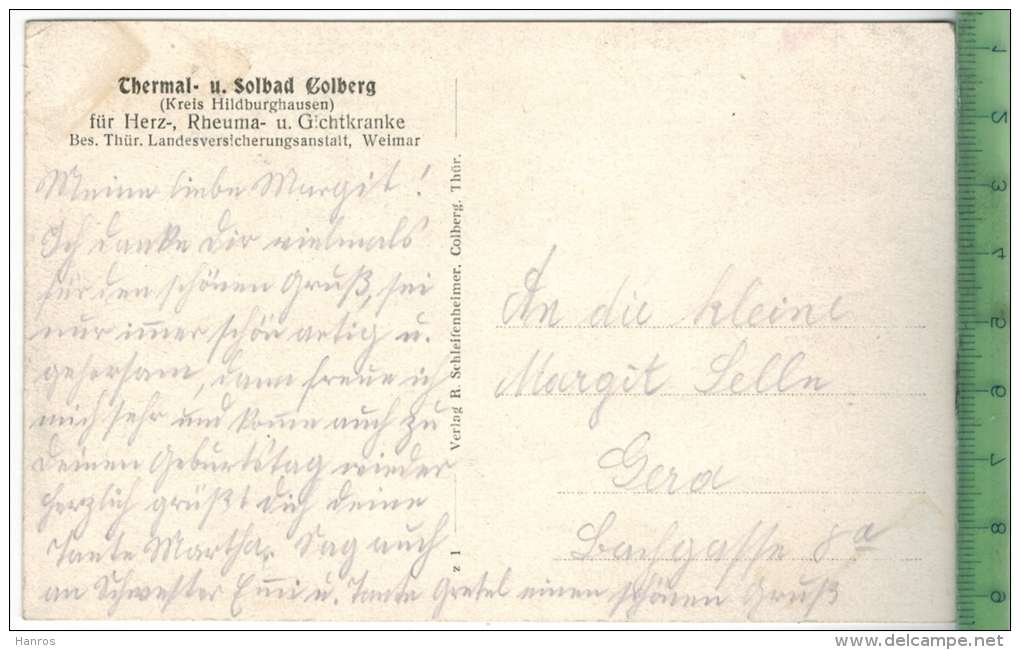 Thermal- u. Solbad Colberg
(Kreis Hildburghausen)
für Herz-, Rheuma- u. Gichtkranke
Bes. Thür. Landesversicherungsanstalt, Weimar
Meine liebe Margit!
Ich danke Dir vielmals
für den schönen Gruß, sei
nur im̅er schön artig u.
gehorsam, dann freue ich
mich sehr und kom̅e auch zu
Deinen Geburtstag wieder
herzlich grüßt Dich Deine
Tante Martha. Sag auch
an Schwester Em̅i u. Tante Gretel einen schönen Gruß
Verlag R. Schleifenheimer, Colberg, Thür.
z 1
An die kleine
Margit Selle
Gera
Bachgasse 8a
1
2
3
4
5
6
7
8
9
Hanros
www.delcampe.net